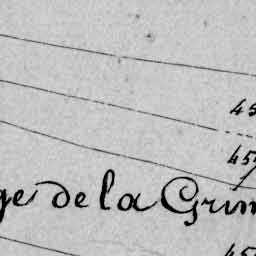 45
45
ge de la Grim
45